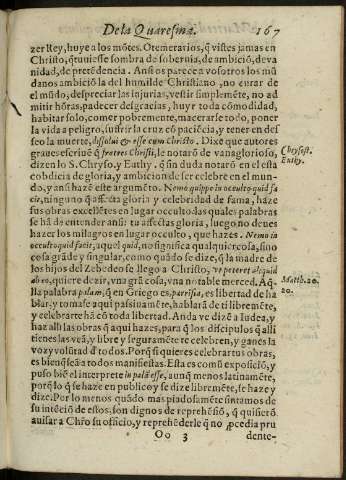 De la Quaresma. 167
zer Rey, huye a los mõtes. O temerarios, q̃ vistes jamas en
Christo, q̃ tuuiesse sombra de soberuia, de ambiciõ, de va
nidad, de pretẽdencia. Ansi os parece a vosotros los mũ
danos ambiciõ la del humilde Christiano, no curar de
el mũdo, despreciar las injurias, vestir simplemẽte, no ad
mitir hõras, padecer desgracias, huyr toda comodidad,
habitar solo, comer pobremente, macerarse todo, poner
la vida a peligro, sufrir la cruz cõ paciẽcia, y tener en des
seo la muerte, dissolui & esse cum Christo. Dixe que autores
graues escriuẽ q̃ fratres Christi, le notarõ de vanaglorioso,
dizen lo S. Chryso. y Euthy. q̃ sin duda notarõ en el esta
cobdicia de gloria, y ambicion de ser celebre en el mun-
do, y ansi hazẽ este argumẽto. Nemo quippe in occulto quid fa
cit, ninguno q̃ affecta gloria y celebridad de fama, haze
sus obras excellẽtes en lugar occulto: las quales palabras
se hã de entender ansi: tu affectas gloria, luego no deues
hazer los milagros en lugar occulto, que hazes. Nemo in
occulto quid facit, aquel quid, no significa qualquier cosa, sino
cosa grãde y singular, como quãdo se dize, q̃ la madre de
los hijos del Zebedeo se llego a Christo, vt peteret aliquid
ab eo, quiere dezir, vna grã cosa, vna notable merced. Aq̃
lla palabra palam, q̃ en Griego es, parrisia, es libertad de ha
blar: y tomase aqui passiuamẽte, hablarã de ti libremẽte,
y celebrarte hã cõ toda libertad. Anda ve dizẽ a Iudea, y
haz alli las obras q̃ aqui hazes, para q̃ los discipulos q̃ alli
tienes las veã, y libre y seguramẽte te celebren, y ganes la
voz y volũtad d̃ todos. Porq̃ si quieres celebrar tus obras,
es bien q̃ seã a todos manifiestas. Esta es comũ exposiciõ, y
puso biẽ el interprete in palã esse, aunq̃ menos latinamẽte,
porq̃ lo q̃ se haze en publico y se dize libremẽte, se haze y
dize. Por lo menos quãdo mas piadosamẽte sintamos de
su intẽciõ de estos: son dignos de reprehẽsiõ, q̃ quisierõ
auisar a Chr̃o su officio, y reprehẽderle q̃ no procedia pru
Oo 3 dente-
Chrysost.
Euthy.
Matth. 20.
20.